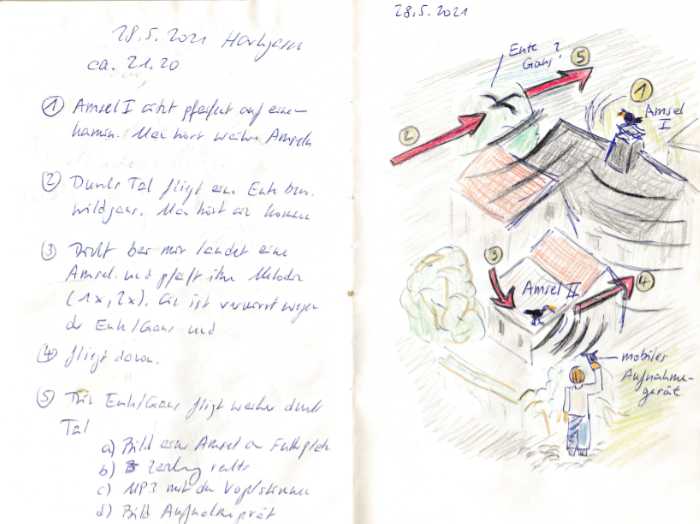 28.5.2021
ca. 21.20
① Amsel I sitzt pfeifend auf einem
kamin. Man hört weitere Amseln
② Durchs Tal fliegt eine Ente bzw.
Wildgans. Man hört sie kommen
③ Dicht bei mir landet eine
Amsel und pfeift ihre Melodie
(1x, 2x). Sie ist verwirrt wegen
der Ente/Gans und
④ fliegt davon.
⑤ Die Ente/Gans fliegt weiter durchs
Tal
a) Bild einer Amsel am Futterplatz
b) Zeichnung rechts
c) MP3 mit den Vogelstimmen
d) Bild Aufnahmegerät
28.5.2021
Ente?
Gans?
⑤
①
Amsel
I
②
③
Amsel II
④
mobiles
Aufnahme-
gerät